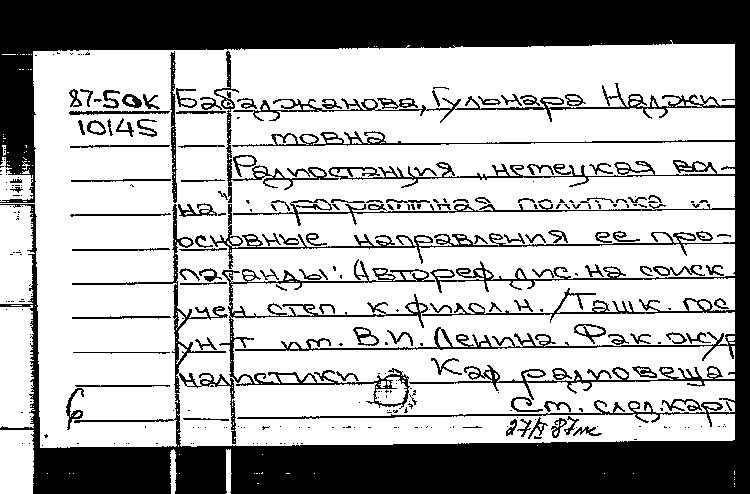 87-50к Бабаджанова, Гульнара Наджи-
10145
товна.
Радиостанция „немецкая вол-
на“: программная политика и
основные направления ее про-
паганды: Автореф. дис. на соиск.
учен. степ. к. филол. н. / Ташк. гос
ун-т им. В.И. Ленина. Фак. жур
налистики Каф. радиовеща-
б Ст. след. карт